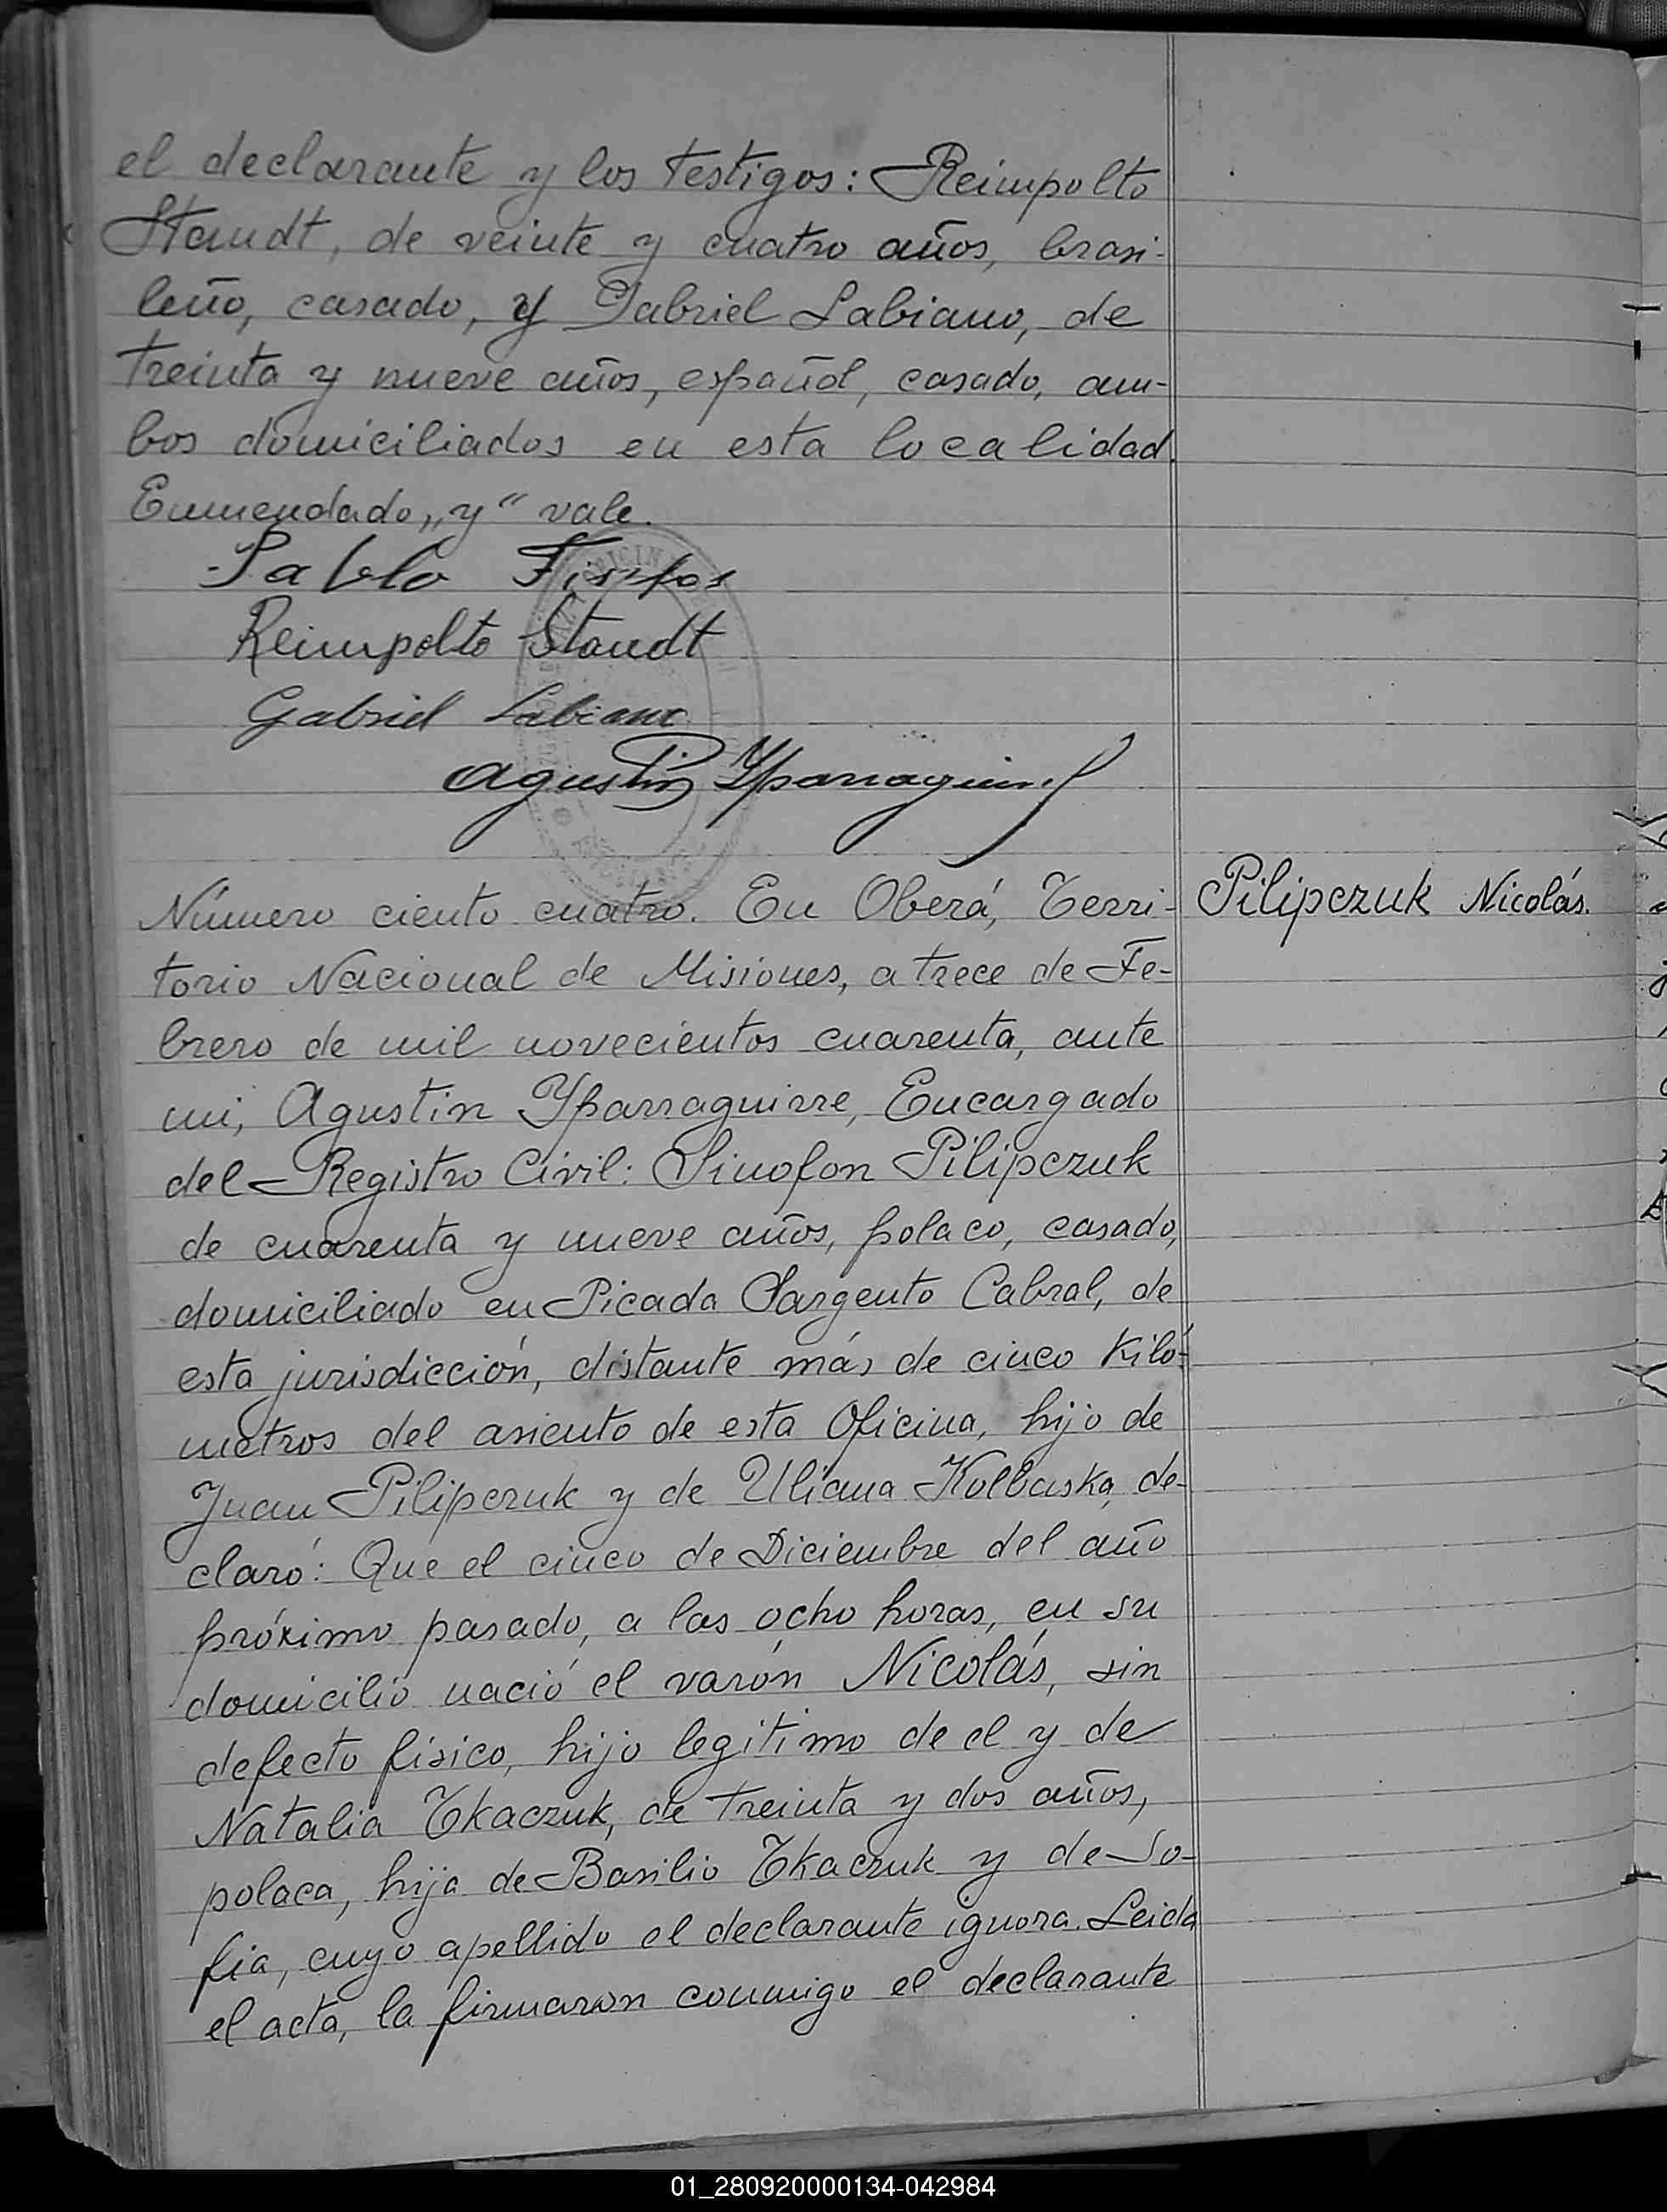 el declarante y los testigos: Reimpolto
Staudt, de veinte y cuatro años, brasi-
leño, casado, y Gabriel Labiano, de
treinta y nueve años, español, casado, am-
bos domiciliados en esta localidad.
Enmendado „y“ vale.
Pablo
Reimpolto Staudt
Gabriel Labiano
Agustin Yparraguirre
Número ciento cuatro. En Oberá, Terri-
Pilipczuk Nicolás.
torio Nacional de Misiones, a trece de Fe-
brero de mil novecientos cuarenta, ante
mi, Agustin Yparraguirre, Encargado
del Registro Civil: Sinofon Pilipczuk
de cuarenta y nueve años, polaco, casado,
domiciliado en Picada Sargento Cabral, de
esta jurisdicción, distante más de cinco Kiló-
metros del asiento de esta Oficina, hijo de
Juan Pilipczuk y de Uliana Kolbaska, de-
claró: Que el cinco de Diciembre del año
próximo pasado, a las ocho horas, en su
domicilio nació el varón Nicolás, sin
defecto físico, hijo legitimo de el y de
Natalia Tkaczuk, de treinta y dos años,
polaca, hija de Basilio Tkaczuk y de So-
fia, cuyo apellido el declarante ignora. Leida
el acta, la firmaron conmigo el declarante
01_280920000134-042984